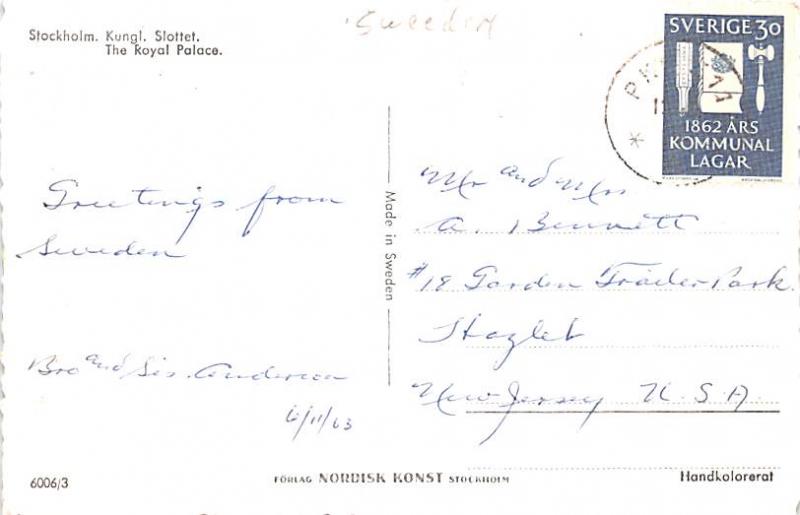 Sweden
Stockholm. Kungl. Slottet.
The Royal Palace.
SVERIGE 30
1862 ÅRS
KOMMUNAL
LAGAR
PK
Greetings from
Sweden
Bro and Sis. Anderson
6/11/63
Made in Sweden
Mr and Mrs
A. Bennett
#18 Garden Trailer Park.
Hazlet
New Jersey U.S.A.
6006/3
FÖRLAG NORDISK KONST STOCKHOLM
Handkolorerat